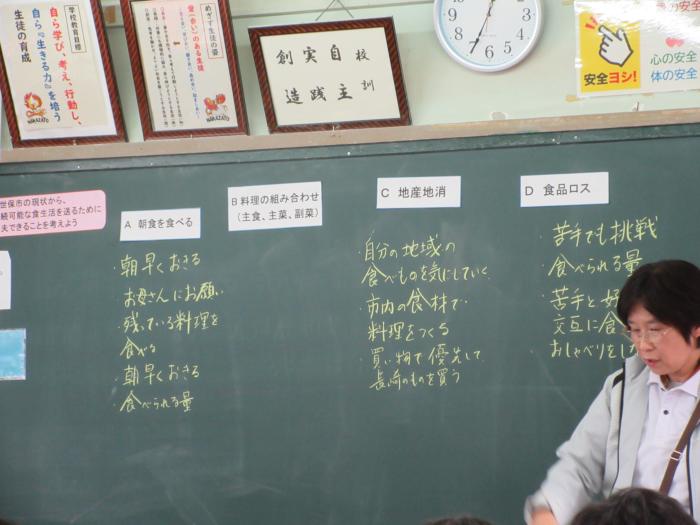 学校教育目標
自ら学び、考え、行動し、
自ら『生きる力』を培う
生徒の育成
めざす生徒の姿
愛(合い)のある生徒
校訓
自主
実践
創造
安全ヨシ!
の安全
心の安全
体の安全
世保市の現状から、
続可能な食生活を送るために
夫できることを考えよう
A 朝食を食べる
・朝早くおきる
お母さんにお願い
・残っている料理を
食べる
・朝早くおきる
・食べられる量
B 料理の組み合わせ
(主食、主菜、副菜)
C 地産地消
・自分の地域の
食べものを気にしていく
・市内の食材で
料理をつくる
・買い物で優先して
長崎のものを買う
D 食品ロス
・苦手でも挑戦
・食べられる量
・苦手と好
交互に食
おしゃべりをし